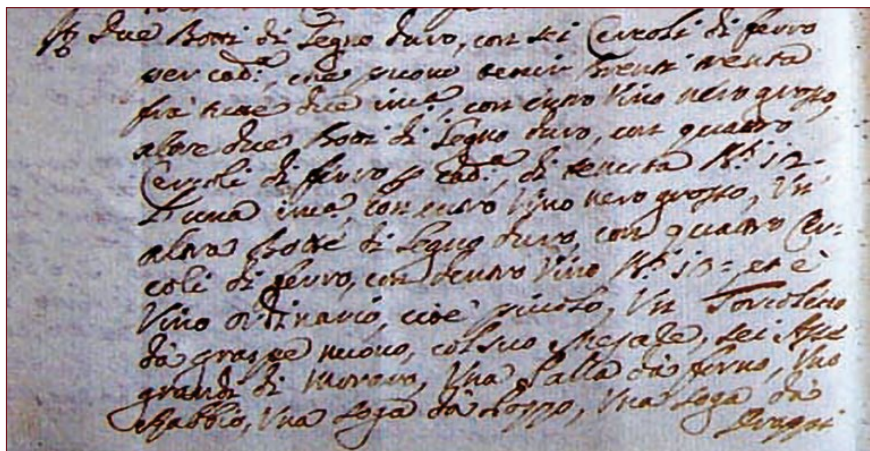 Due Botti di Legno duro, con sei Cercoli di ferro
per cad:a, che puono tenir Brenti trenta
frà tutte due inc:a, con entro Vino nero grosso,
altre due Botti di Legno duro, con quattro
Cercoli di ferro p cad:a, di tenuta B:ti 12
l'una inc:a, con entro Vino nero grosso, Un
altra Botte di Legno duro, con quattro Cer-
coli di ferro, con dentro Vino B:ti 10= et è
Vino ordinario, cioè picolo, Un Torcoletto
dà graspe nuovo, col suo, sei Asse
grandi di, Una Palla dà forno, Uno
Rabbio, Una Soga dà, Una Soga dà